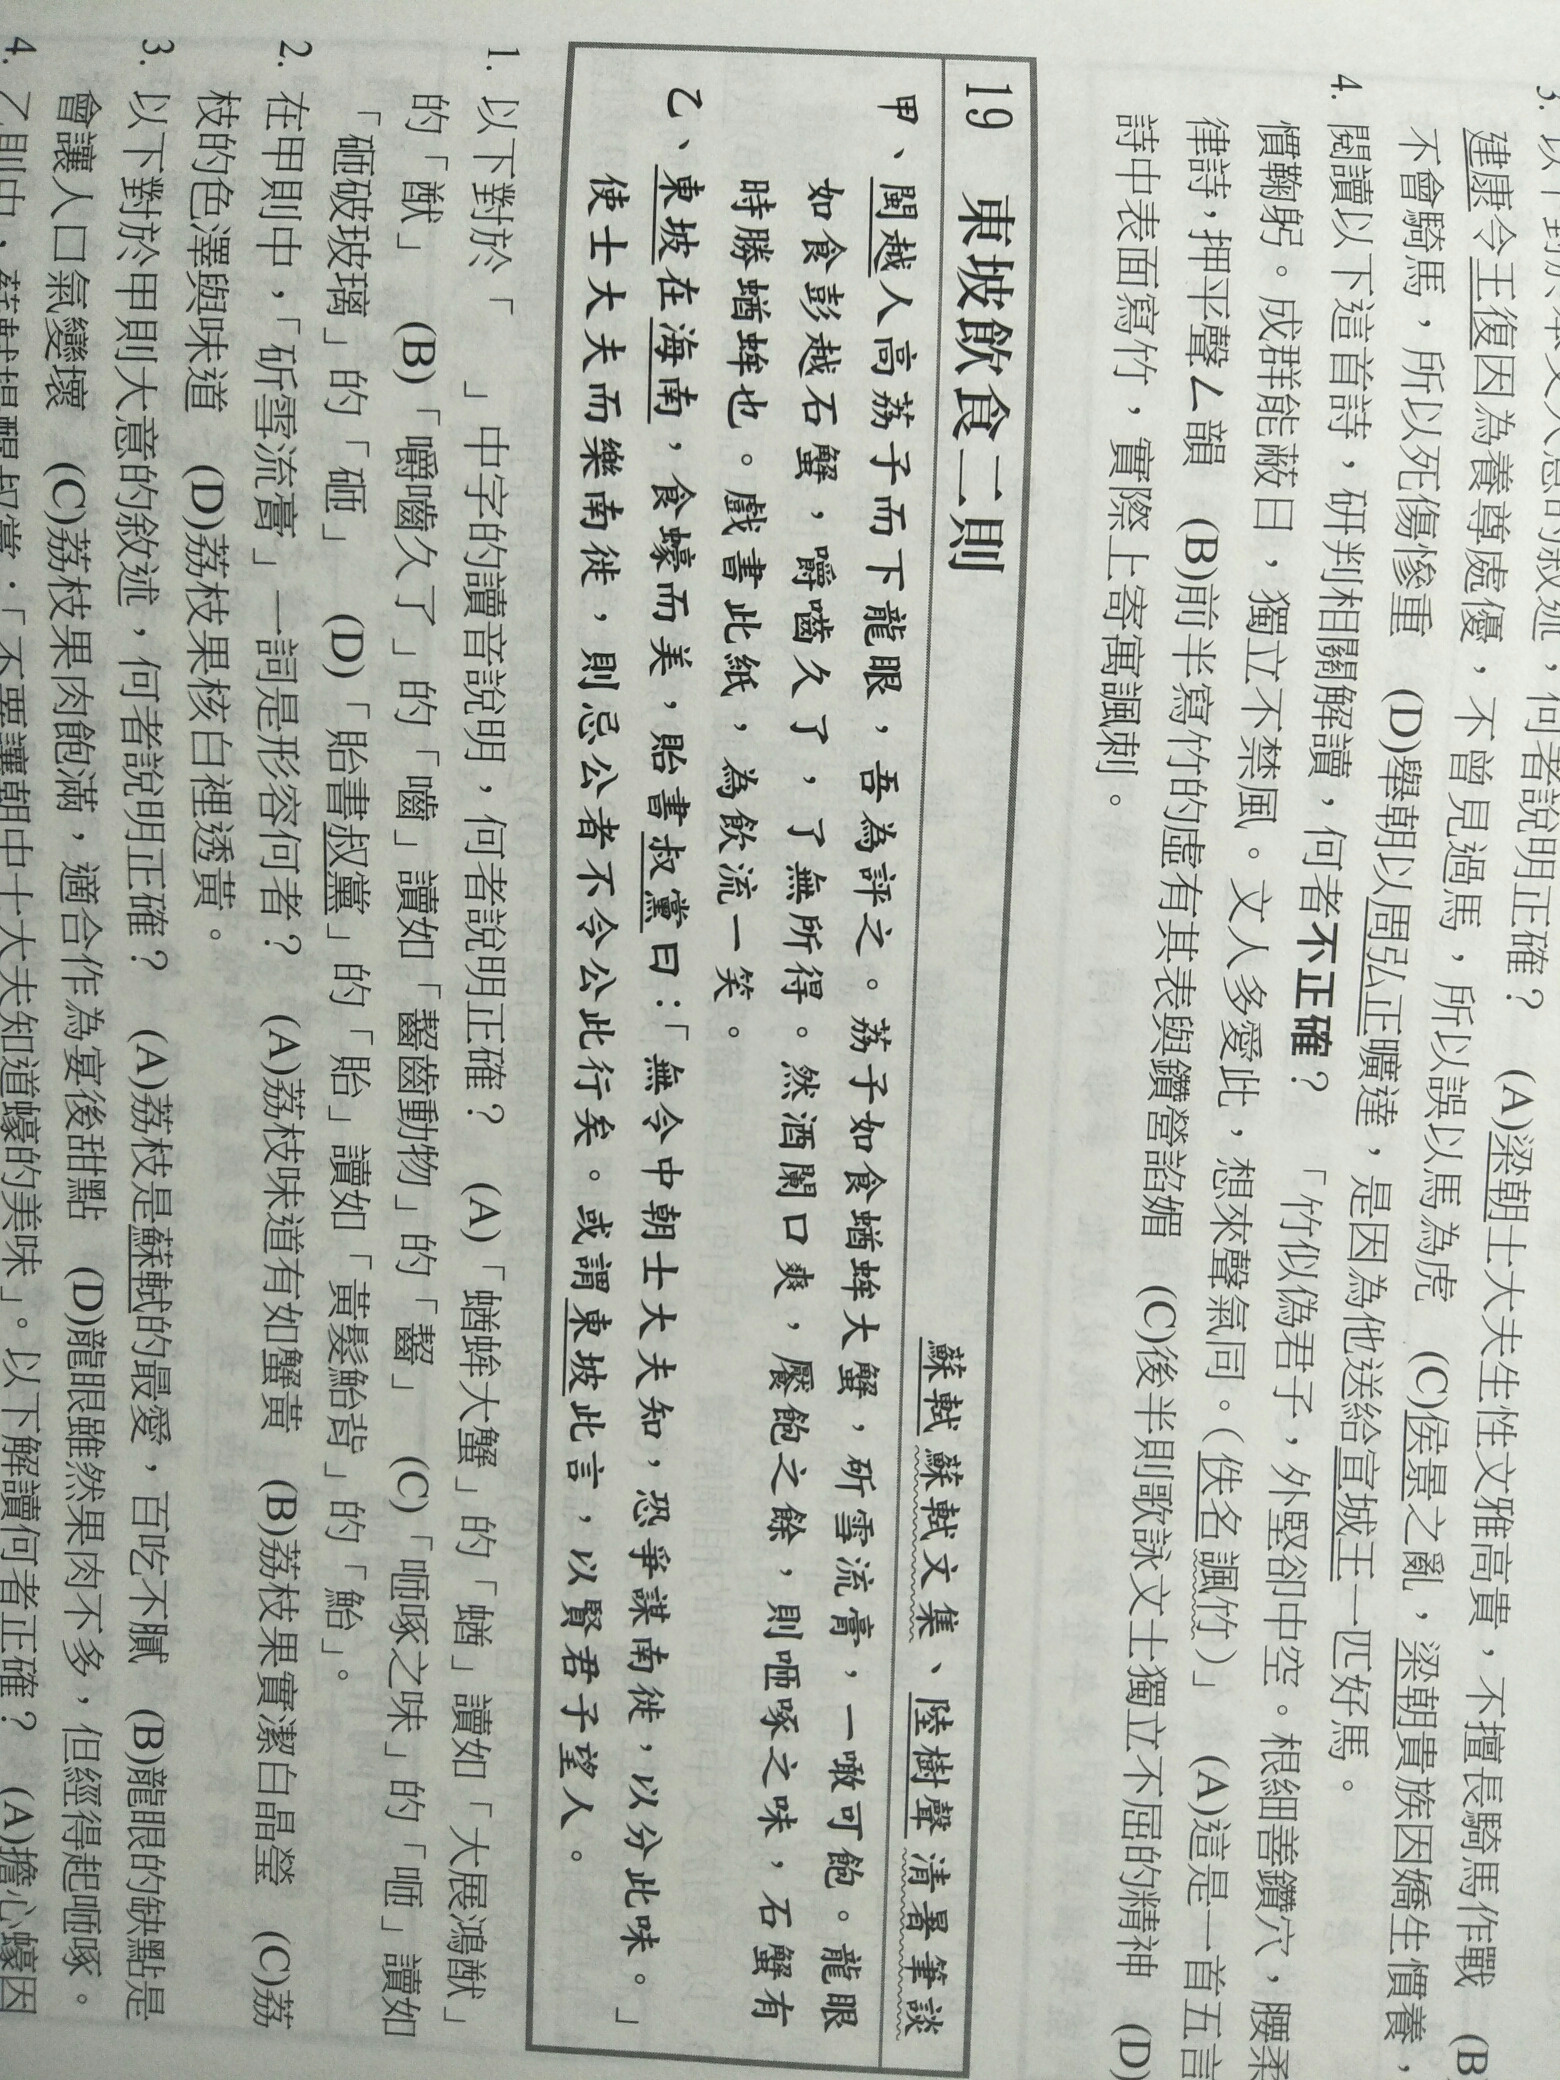 3. 以下對於本文大意的敘述，何者說明正確？　(A)梁朝士大夫生性文雅高貴，不擅長騎馬作戰　(B)
建康令王復因為養尊處優，不曾見過馬，所以誤以馬為虎　(C)侯景之亂，梁朝貴族因嬌生慣養，
不會騎馬，所以死傷慘重　(D)舉朝以周弘正曠達，是因為他送給宣城王一匹好馬。
4. 閱讀以下這首詩，研判相關解讀，何者不正確？　「竹似偽君子，外堅卻中空。根細善鑽穴，腰柔
慣鞠躬。成群能蔽日，獨立不禁風。文人多愛此，想來聲氣同。（佚名諷竹）」　(A)這是一首五言
律詩，押平聲ㄥ韻　(B)前半寫竹的虛有其表與鑽營諂媚　(C)後半則歌詠文士獨立不屈的精神　(D)
詩中表面寫竹，實際上寄寓諷刺。
19　東坡飲食二則
蘇軾蘇軾文集、陸樹聲清暑筆談
甲、閩越人高荔子而下龍眼，吾為評之。荔子如食蝤蛑大蟹，斫雪流膏，一噉可飽。龍眼
如食彭越石蟹，嚼嚙久了，了無所得。然酒闌口爽，饜飽之餘，則咂啄之味，石蟹有
時勝蝤蛑也。戲書此紙，為飲流一笑。
乙、東坡在海南，食蠔而美，貽書叔黨曰：「無令中朝士大夫知，恐爭謀南徙，以分此味。」
使士大夫而樂南徙，則忌公者不令公此行矣。或謂東坡此言，以賢君子望人。
1. 以下對於「　」中字的讀音說明，何者說明正確？　(A)「蝤蛑大蟹」的「蝤」讀如「大展鴻猷」
的「猷」　(B)「嚼嚙久了」的「嚙」讀如「齧齒動物」的「齧」　(C)「咂啄之味」的「咂」讀如
「砸破玻璃」的「砸」　(D)「貽書叔黨」的「貽」讀如「黃髮鮐背」的「鮐」。
2. 在甲則中，「斫雪流膏」一詞是形容何者？　(A)荔枝味道有如蟹黃　(B)荔枝果實潔白晶瑩　(C)荔
枝的色澤與味道　(D)荔枝果核白裡透黃。
3. 以下對於甲則大意的敘述，何者說明正確？　(A)荔枝是蘇軾的最愛，百吃不膩　(B)龍眼的缺點是
會讓人口氣變壞　(C)荔枝果肉飽滿，適合作為宴後甜點　(D)龍眼雖然果肉不多，但經得起咂啄。
4. 乙則中，蘇軾提醒叔黨：「不要讓朝中士大夫知道蠔的美味」。以下解讀何者正確？　(A)擔心蠔因